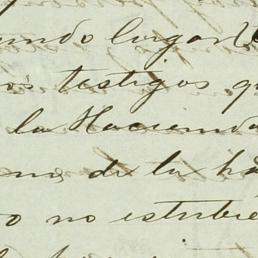 lugar
os testigos q
la Hacienda
de la ha
o no estubie